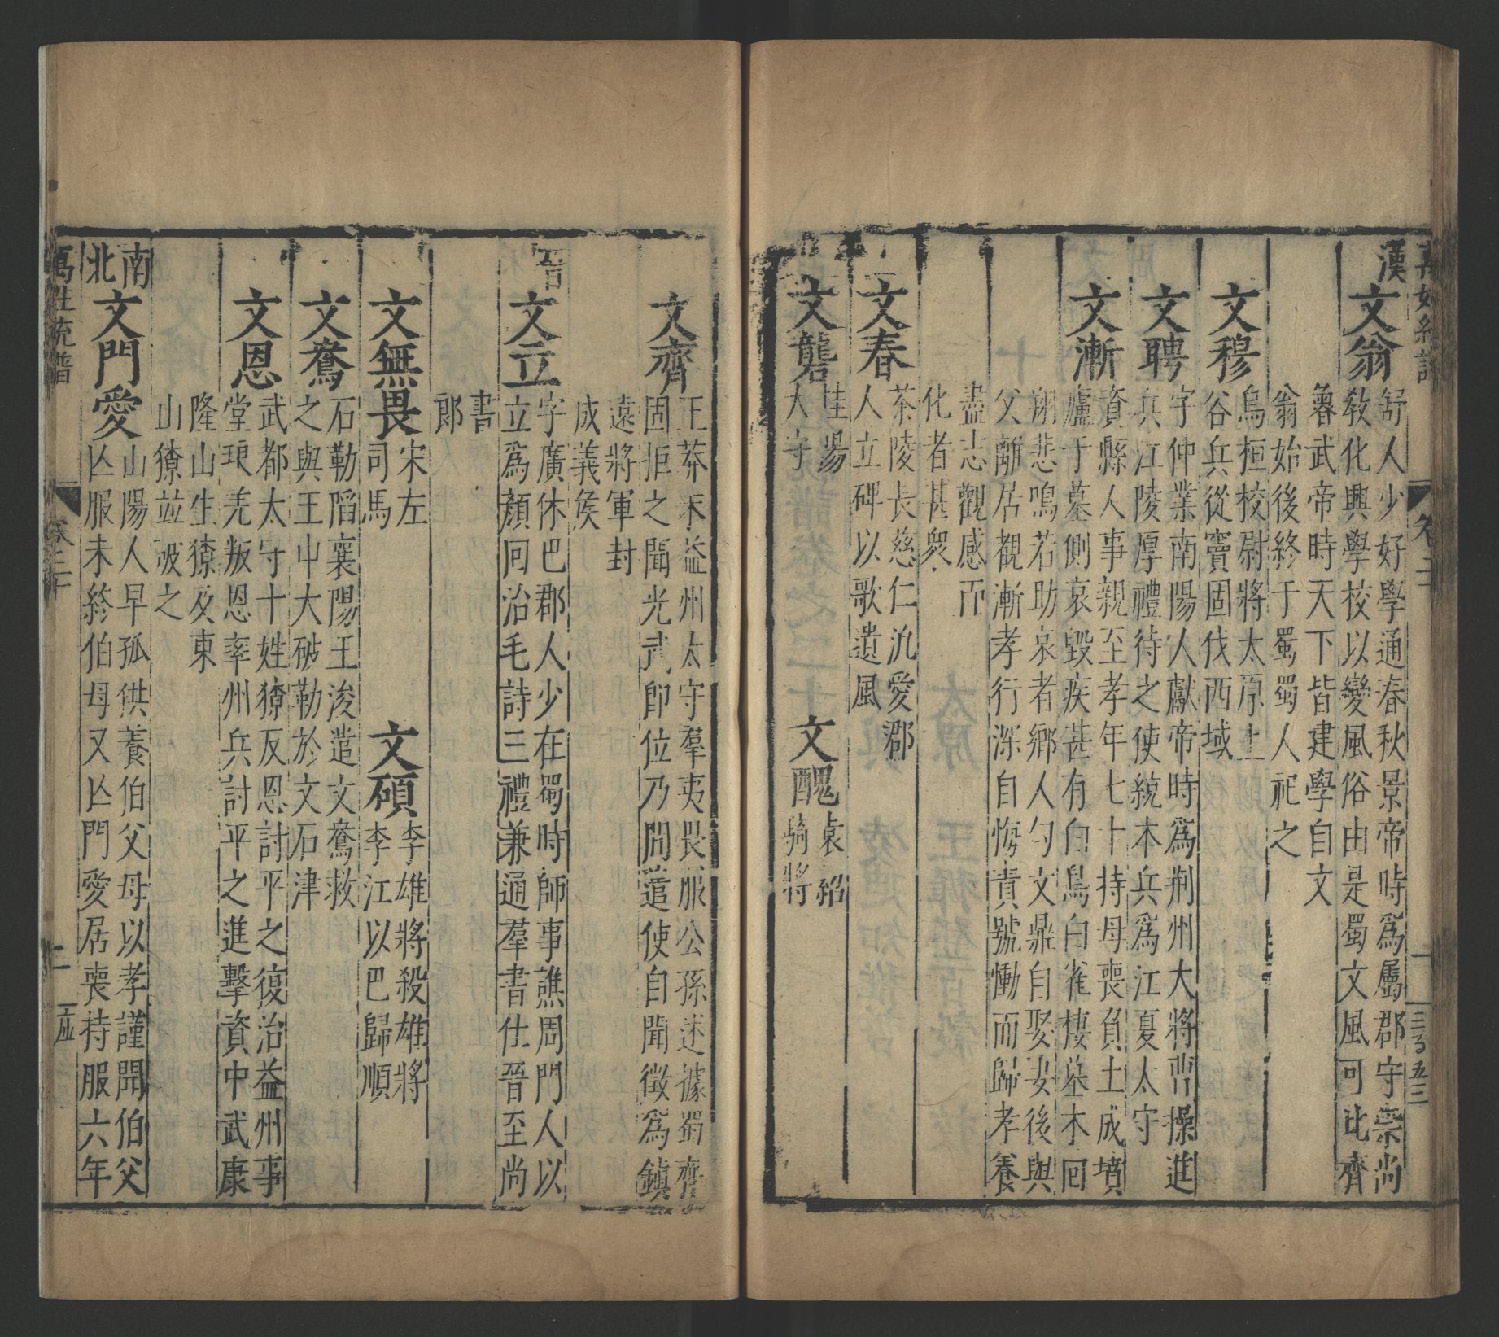 漢
文翁
舒人少好學通春秋景帝時爲屬郡守崇尚
敎化興學校以變風俗由是蜀文風可比齊
魯武帝時天下皆建學自文
翁始後終于蜀蜀人祀之
文穆
烏桓校尉將太原土
谷兵從竇固伐西域
文聘
字仲業南陽人獻帝時爲荆州大將曹操進
兵江陵厚禮待之使統本兵爲江夏太守
文漸
資縣人事親至孝年七十持母喪負土成墳
廬于墓側哀毀疾甚有白烏白雀棲墓木回
翔悲鳴若助哀者鄉人勺文鼎自娶妻後與
父離居觀漸孝行深自悔責號慟而歸孝養
盡志觀感而
化者甚衆
文春
茶陵長慈仁汎愛郡
人立碑以歌遺風
文礱
桂陽
太守
文醜
袁紹
騎將
文齊
王莽末益州太守羣夷畏服公孫述據蜀齊
固拒之聞光武卽位乃間遣使自聞徵爲鎮
遠將軍封
成義矦
晉
文立
字廣休巴郡人少在蜀時師事譙周門人以
立爲顔回治毛詩三禮兼通羣書仕晉至尚
書
郎
文無畏
宋左
司馬
文碩
李雄將殺雄將
李江以巴歸順
文鴦
石勒䧟襄陽王浚遣文鴦救
之與王巾大破勒於文石津
文恩
武都太守十姓獠反恩討平之復治益州事
堂琅羌叛恩率州兵討平之進擊資中武康
隆山生獠及東
山獠並破之
南
北
文門愛
山陽人早孤供養伯父母以孝謹聞伯父
亾服未終伯母又亾門愛居喪持服六年
萬姓統譜
卷二十
二